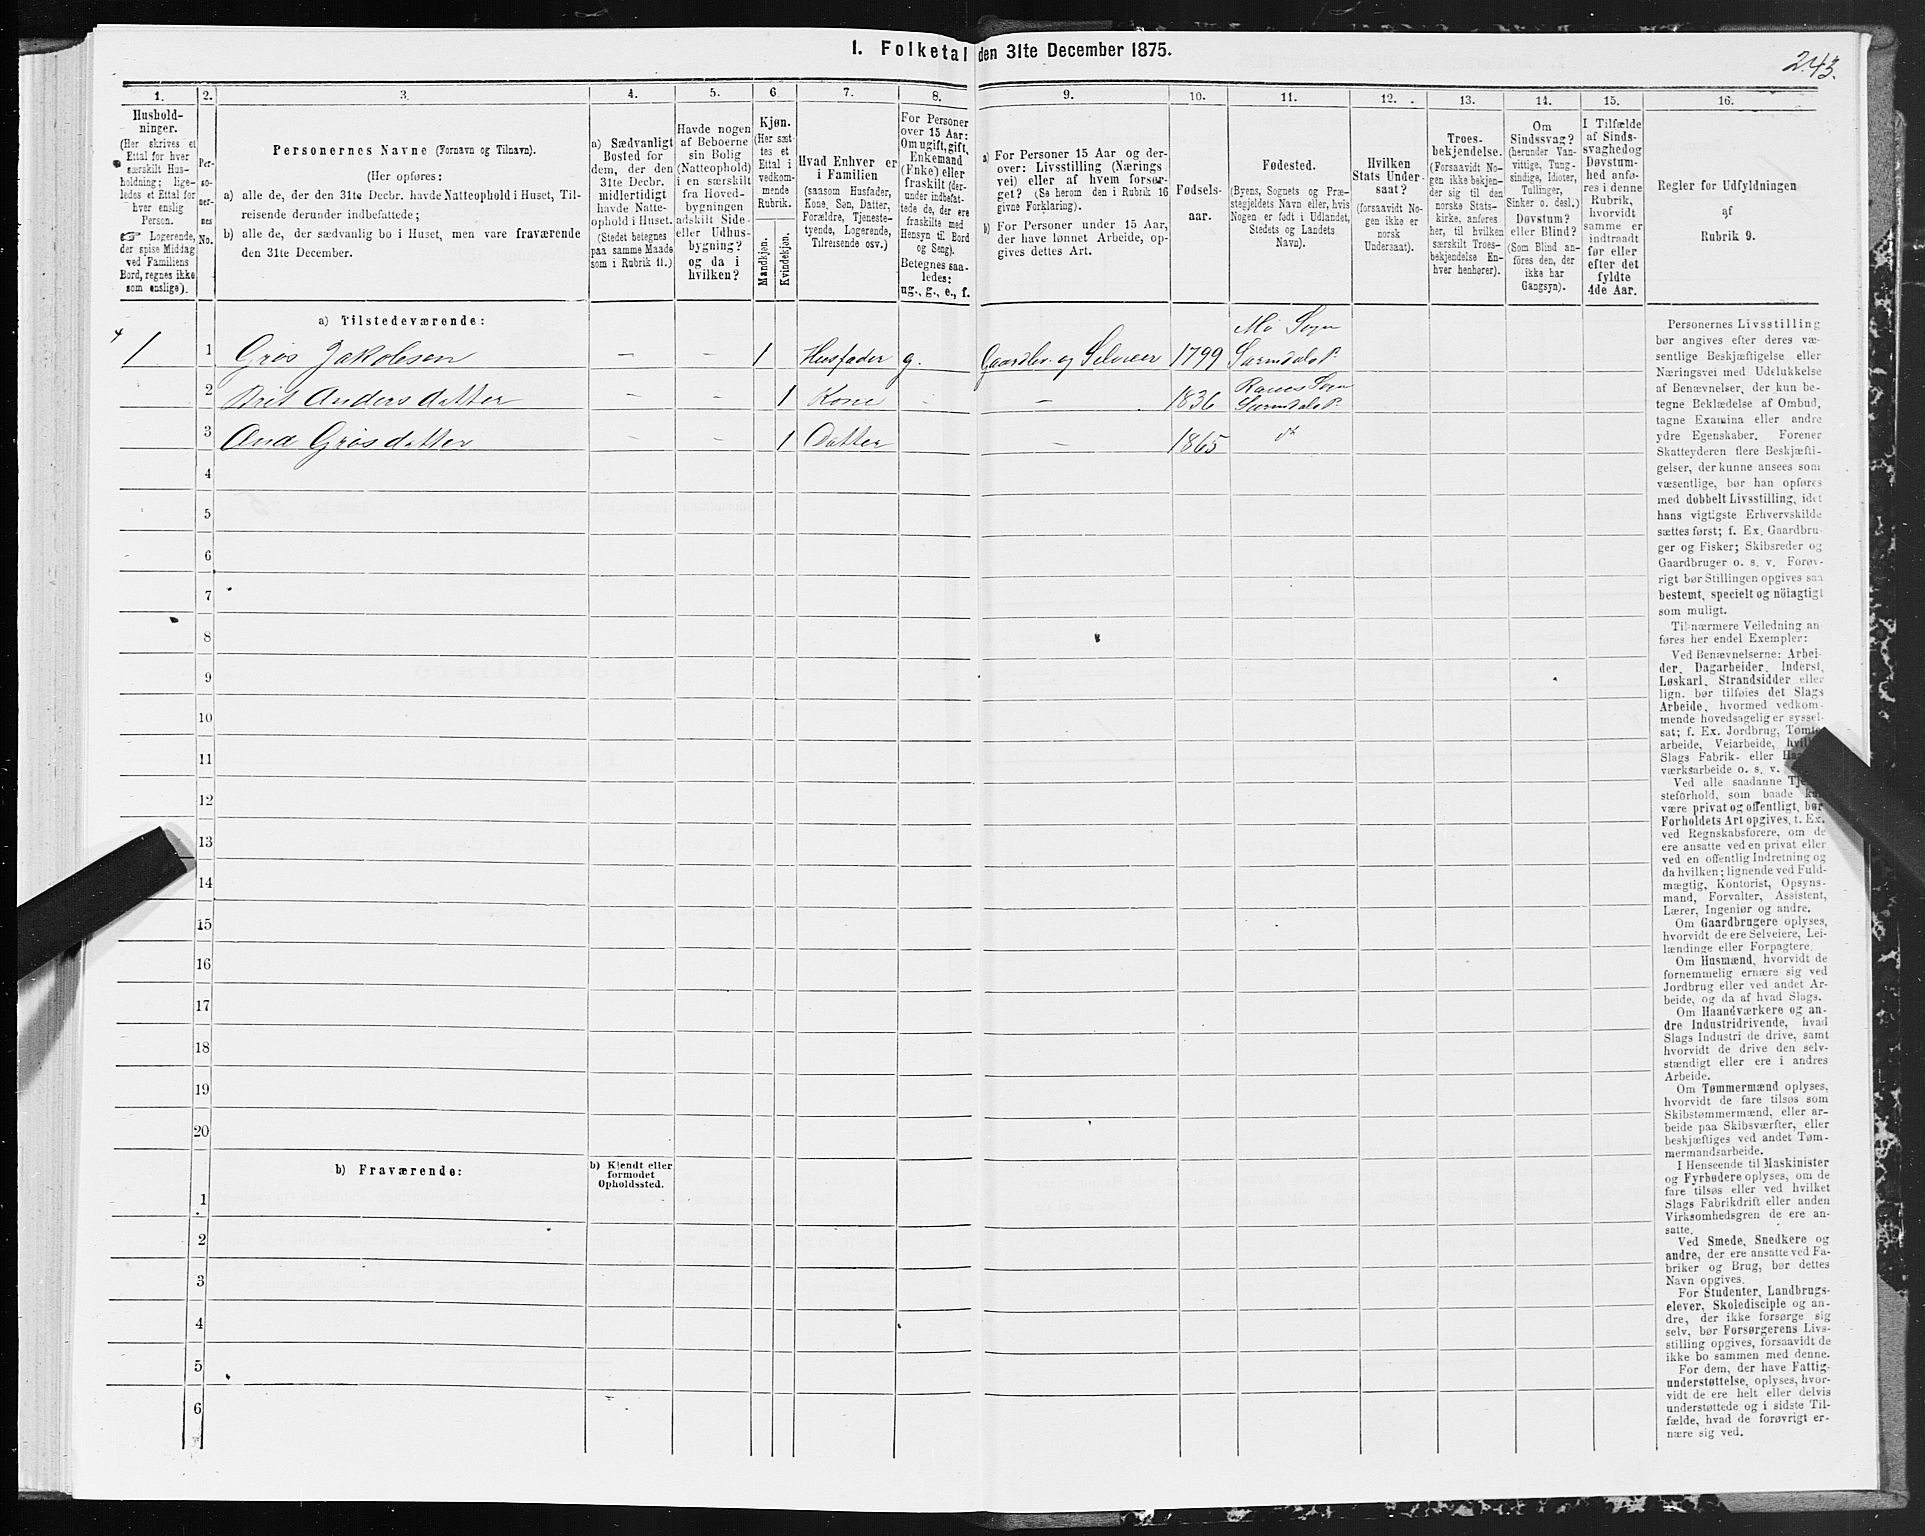 1. Folketal den 31te December 1875.
243.
1.
2.
3.
4.
5.
6.
7.
8.
9.
10.
11.
12.
13.
14.
15.
16.
Hushold-
ninger.
(Her skrives et
Ettal for hver
særskilt Hus-
holdning; lige-
ledes et Ettal for
hver enslig
Person.
☞ Logerende,
der spise Middag
ved Familiens
Bord, regnes ikke
som enslige).
Per-
so-
ner-
nes
No.
Personernes Navne (Fornavn og Tilnavn).
(Her opføres:
a) alle de, der den 31te Decbr. havde Natteophold i Huset, Til-
reisende derunder indbefattede;
b) alle de, der sædvanlig bo i Huset, men vare fraværende
den 31te December.
a) Sædvanligt
Bosted for
dem, der den
31te Decbr.
midlertidigt
havde Natte-
ophold i Huset.
(Stedet betegnes
paa samme Maade
som i Rubrik 11.)
Havde nogen
af Beboerne
sin Bolig
(Natteophold)
i en særskilt
fra Hoved-
bygningen
adskilt Side-
eller Udhus-
bygning?
og da i
hvilken?
Kjøn.
(Her sæt-
tes et
Ettal i
vedkom-
mende
Rubrik.
Mandkjøn.
Kvindekjøn.
Hvad Enhver er
i Familien
(saasom Husfader,
Kone, Søn, Datter,
Forældre, Tjeneste-
tyende, Logerende,
Tilreisende osv.)
For Personer
over 15 Aar:
Om ugift, gift,
Enkemand
(Enke) eller
fraskilt (der-
under indbefat-
tede de, der ere
fraskilte med
Hensyn til Bord
og Seng).
Betegnes saa-
ledes:
ug., g., e., f.
a) For Personer 15 Aar og der-
over: Livsstilling (Nærings
vei) eller af hvem forsør-
get? (Se herom den i Rubrik 16
givne Forklaring).
b) For Personer under 15 Aar,
der have lønnet Arbeide, op-
gives dettes Art.
Fødsels-
aar.
Fødested.
(Byens, Sognets og Præ-
stegjeldets Navn eller, hvis
Nogen er født i Udlandet,
Stedets og Landets
Navn).
Hvilken
Stats Under-
saat?
(forsaavidt No-
gen ikke er
norsk
Undersaat).
Troes-
bekjendelse.
(Forsaavidt No-
gen ikke bekjen-
der sig til den
norske Stats-
kirke, anføres
her, til hvilken
særskilt Troes-
bekjendelse En-
hver henhører).
Om
Sindssvag?
(herunder Van-
vittige, Tung-
sindige, Idioter,
Tullinger,
Sinker o. desl.)
Døvstum?
eller Blind?
(Som Blind an-
føres den, der
ikke har
Gangsyn).
I Tilfælde
af Sinds-
svaghed og
Døvstum-
hed anfø-
res i denne
Rubrik,
hvorvidt
samme er
indtraadt
før eller
efter det
fyldte
4de Aar.
Regler for Udfyldningen
af
Rubrik 9.
a) Tilstedeværende:
4
1
1 Grøs Jakobsen — — 1 Husfader g. Gaardbr. og Selveier 1799 Mo Sogn
Surendals P.
2 Brit Andersdatter — — 1 Kone — 1836 Ranes Sogn
Surendals P.
3 Ana Grøsdatter — — 1 Datter — 1865 do
4
5
6
7
8
9
10
11
12
13
14
15
16
17
18
19
20
b) Fraværende:
b) Kjendt eller
formodet
Opholdssted.
1
2
3
4
5
6
Personernes Livsstilling
bør angives efter deres væ-
sentlige Beskjæftigelse eller
Næringsvei med Udelukkelse
af Benævnelser, der kun be-
tegne Beklædelse af Ombud,
tagne Examina eller andre
ydre Egenskaber. Forener
Skatteyderen flere Beskjæfti-
gelser, der kunne ansees som
væsentlige, bør han opføres
med dobbelt Livsstilling, idet
hans vigtigste Erhvervskilde
sættes først; f. Ex. Gaardbru-
ger og Fisker; Skibsreder og
Gaardbruger o. s. v. Forøv-
rigt bør Stillingen opgives saa
bestemt, specielt og nöiagtigt
som muligt.
Til nærmere Veiledning an-
føres her endel Exempler:
Ved Benævnelserne: Arbei-
der, Dagarbeider, Inderst,
Løskarl, Strandsidder eller
lign. bør tilføies det Slags
Arbeide, hvormed vedkom-
mende hovedsagelig er syssel-
sat; f. Ex. Jordbrug, Tømte-
arbeide, Veiarbeide, hvilket
Slags Fabrik- eller
værksarbeide o. s. v.
Ved alle saadanne
steforhold, som baade kan
være privat og offentligt, bør
Forholdets Art opgives, t. Ex.
ved Regnskabsførere, om de
ere ansatte ved en privat eller
ved en offentlig Indretning og
da hvilken; lignende ved Fuld-
mægtig, Kontorist, Opsyns-
mand, Forvalter, Assistent,
Lærer, Ingeniør og andre.
Om Gaardbrugere oplyses,
hvorvidt de ere Selveiere, Lei-
lændinge eller Forpagtere.
Om Husmænd, hvorvidt de
fornemmelig ernære sig ved
Jordbrug eller ved andet Ar-
beide, og da af hvad Slags.
Om Haandværkere og an-
dre Industridrivende, hvad
Slags Industri de drive, samt
hvorvidt de drive den selv-
stændigt eller ere i andres
Arbeide.
Om Tømmermænd oplyses,
hvorvidt de fare tilsøs som
Skibstømmermænd, eller ar-
beide paa Skibsværfter, eller
beskjæftiges ved andet Tøm-
mermandsarbeide.
I Henseende til Maskinister
og Fyrbødere oplyses, om de
fare tilsøs eller ved hvilket
Slags Fabrikdrift eller anden
Virksomhedsgren de ere an-
satte.
Ved Smede, Snedkere og
andre, der ere ansatte ved Fa-
briker og Brug, bør dettes
Navn opgives.
For Studenter, Landbrugs-
elever, Skoledisciple og an-
dre, der ikke forsørge sig
selv, bør Forsørgerens Livs-
stilling opgives, forsaavidt de
ikke bo sammen med denne.
For dem, der have Fattig-
understøttelse, oplyses, hvor-
vidt de ere helt eller delvis
understøttede og i sidste Til-
fælde, hvad de forøvrigt er-
nære sig ved.